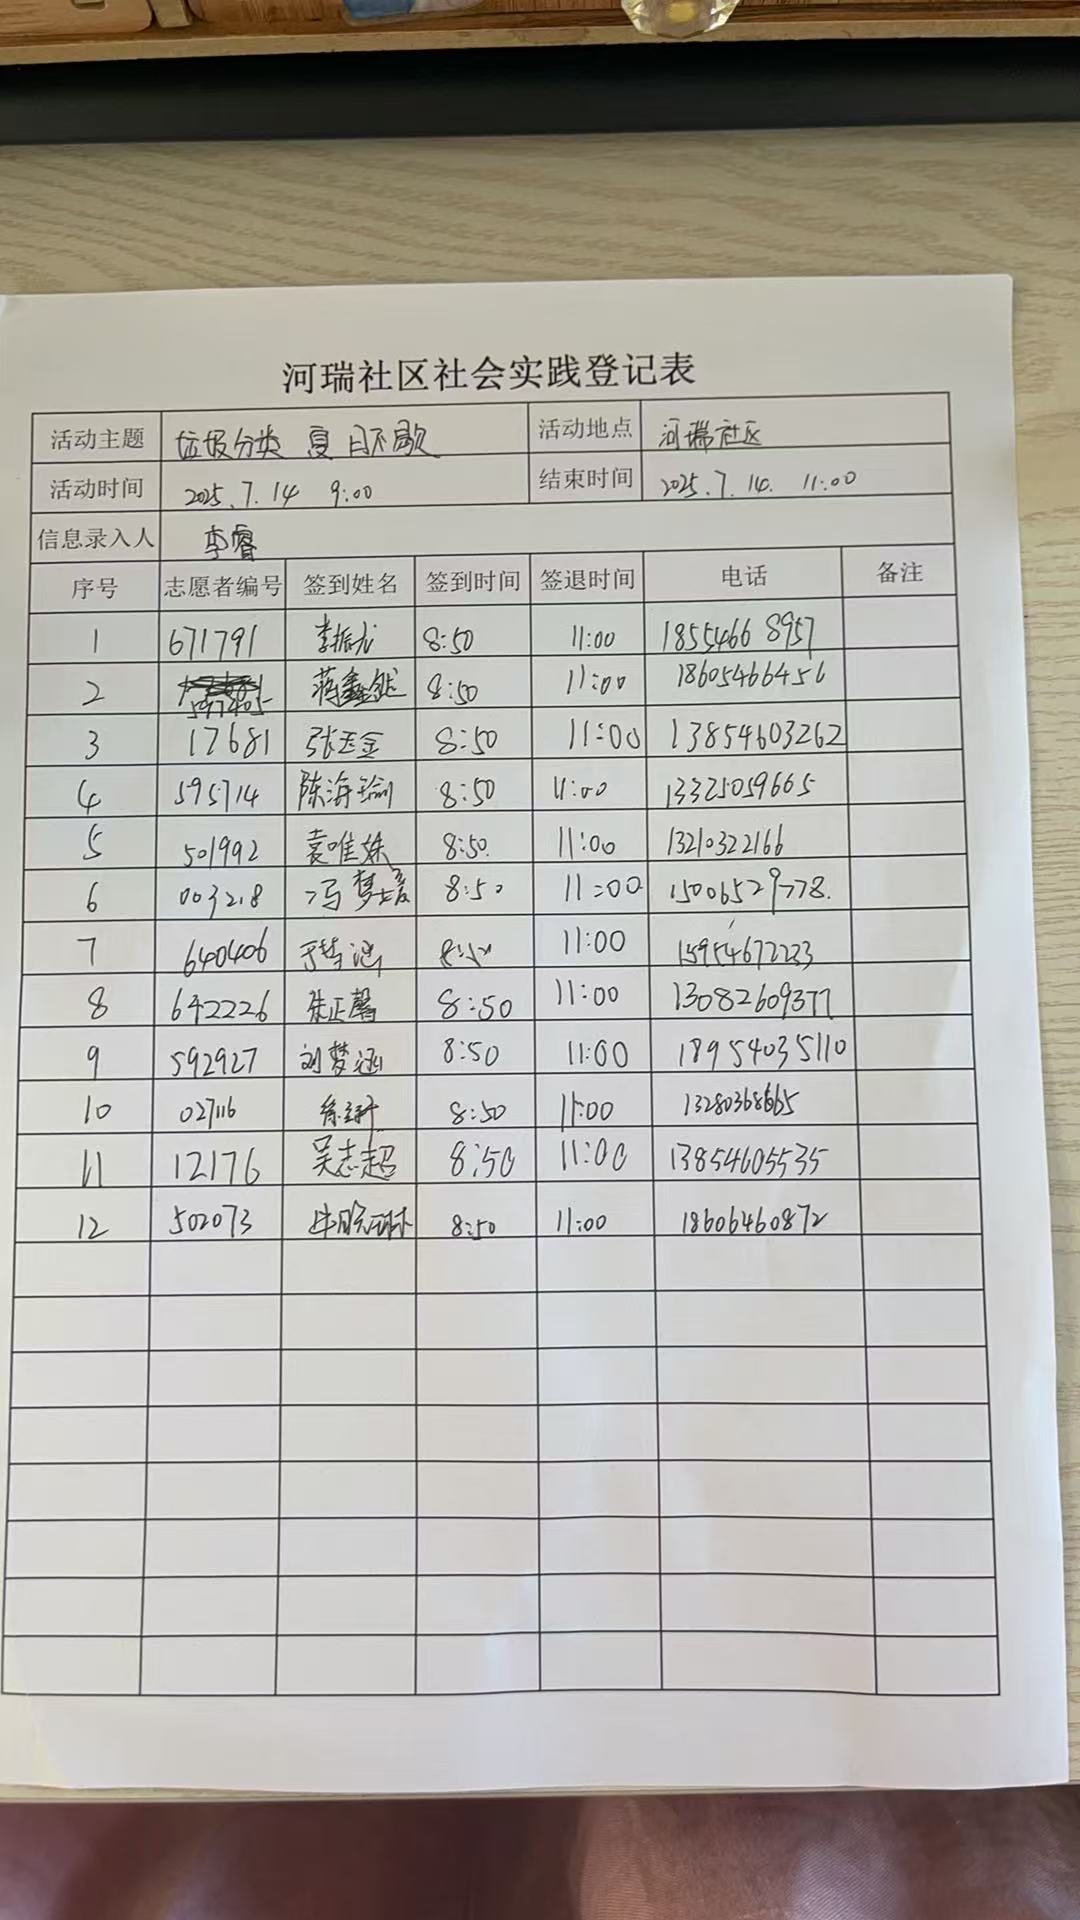 河瑞社区社会实践登记表
活动主题 垃圾分类 夏日不歇 活动地点 河瑞社区
活动时间 2025.7.14 9:00 结束时间 2025.7.14. 11:00
信息录入人 李睿
序号 志愿者编号 签到姓名 签到时间 签退时间 电话 备注
1 671791 李振龙 8:50 11:00 18554668957
2 597405 8:50 11:00 18605466456
3 17681 张玉金 8:50 11:00 13854603262
4 595714 陈海瑜 8:50 11:00 13325059665
5 501992 袁唯姝 8:50. 11:00 13210322166
6 003218 冯梦媛 8:50 11:00 15006529778.
7 640406 8:50 11:00 15954672233
8 642226 朱正馨 8:50 11:00 13082609377
9 592927 刘梦涵 8:50 11:00 18954035110
10 027116 8:50 11:00 13280368665
11 12176 吴志超 8:50 11:00 13854605535
12 502073 8:50 11:00 18606460872